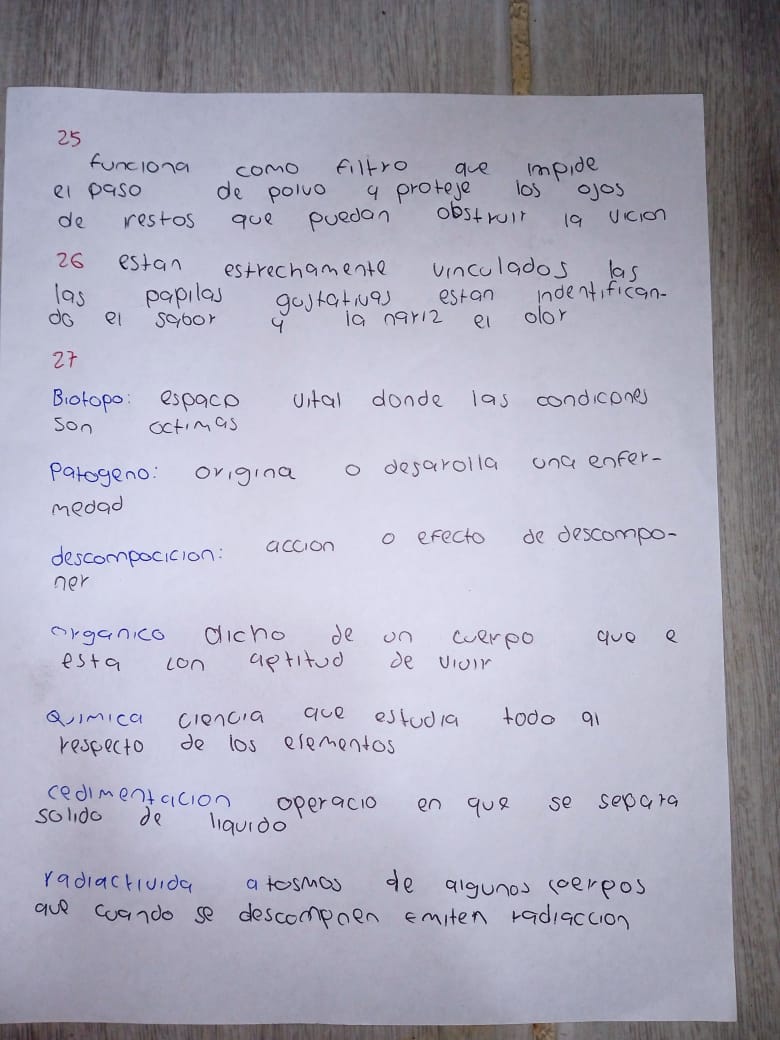 25
funciona como filtro que impide
el paso de polvo y proteje los ojos
de restos que puedan obstruir la vicion
26 estan estrechamente vinculados las
las papilas gustativas estan indentifican-
do el sabor y la nariz el olor
27
Biotopo: espaco vital donde las condicones
son octimas
Patogeno: origina o desarolla una enfer-
medad
descompocicion: accion o efecto de descompo-
ner
organico dicho de un cuerpo que e
esta con aptitud de vivir
Quimica ciencia que estudia todo al
respecto de los elementos
cedimentacion operacio en que se separa
solido de liquido
radiactivida atosmos de algunos coerpos
que cuando se descompnen emiten radiaccion